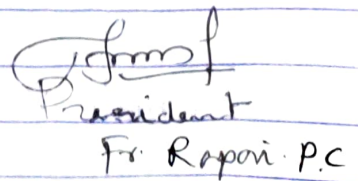 President
Fr. Rapori. P.C